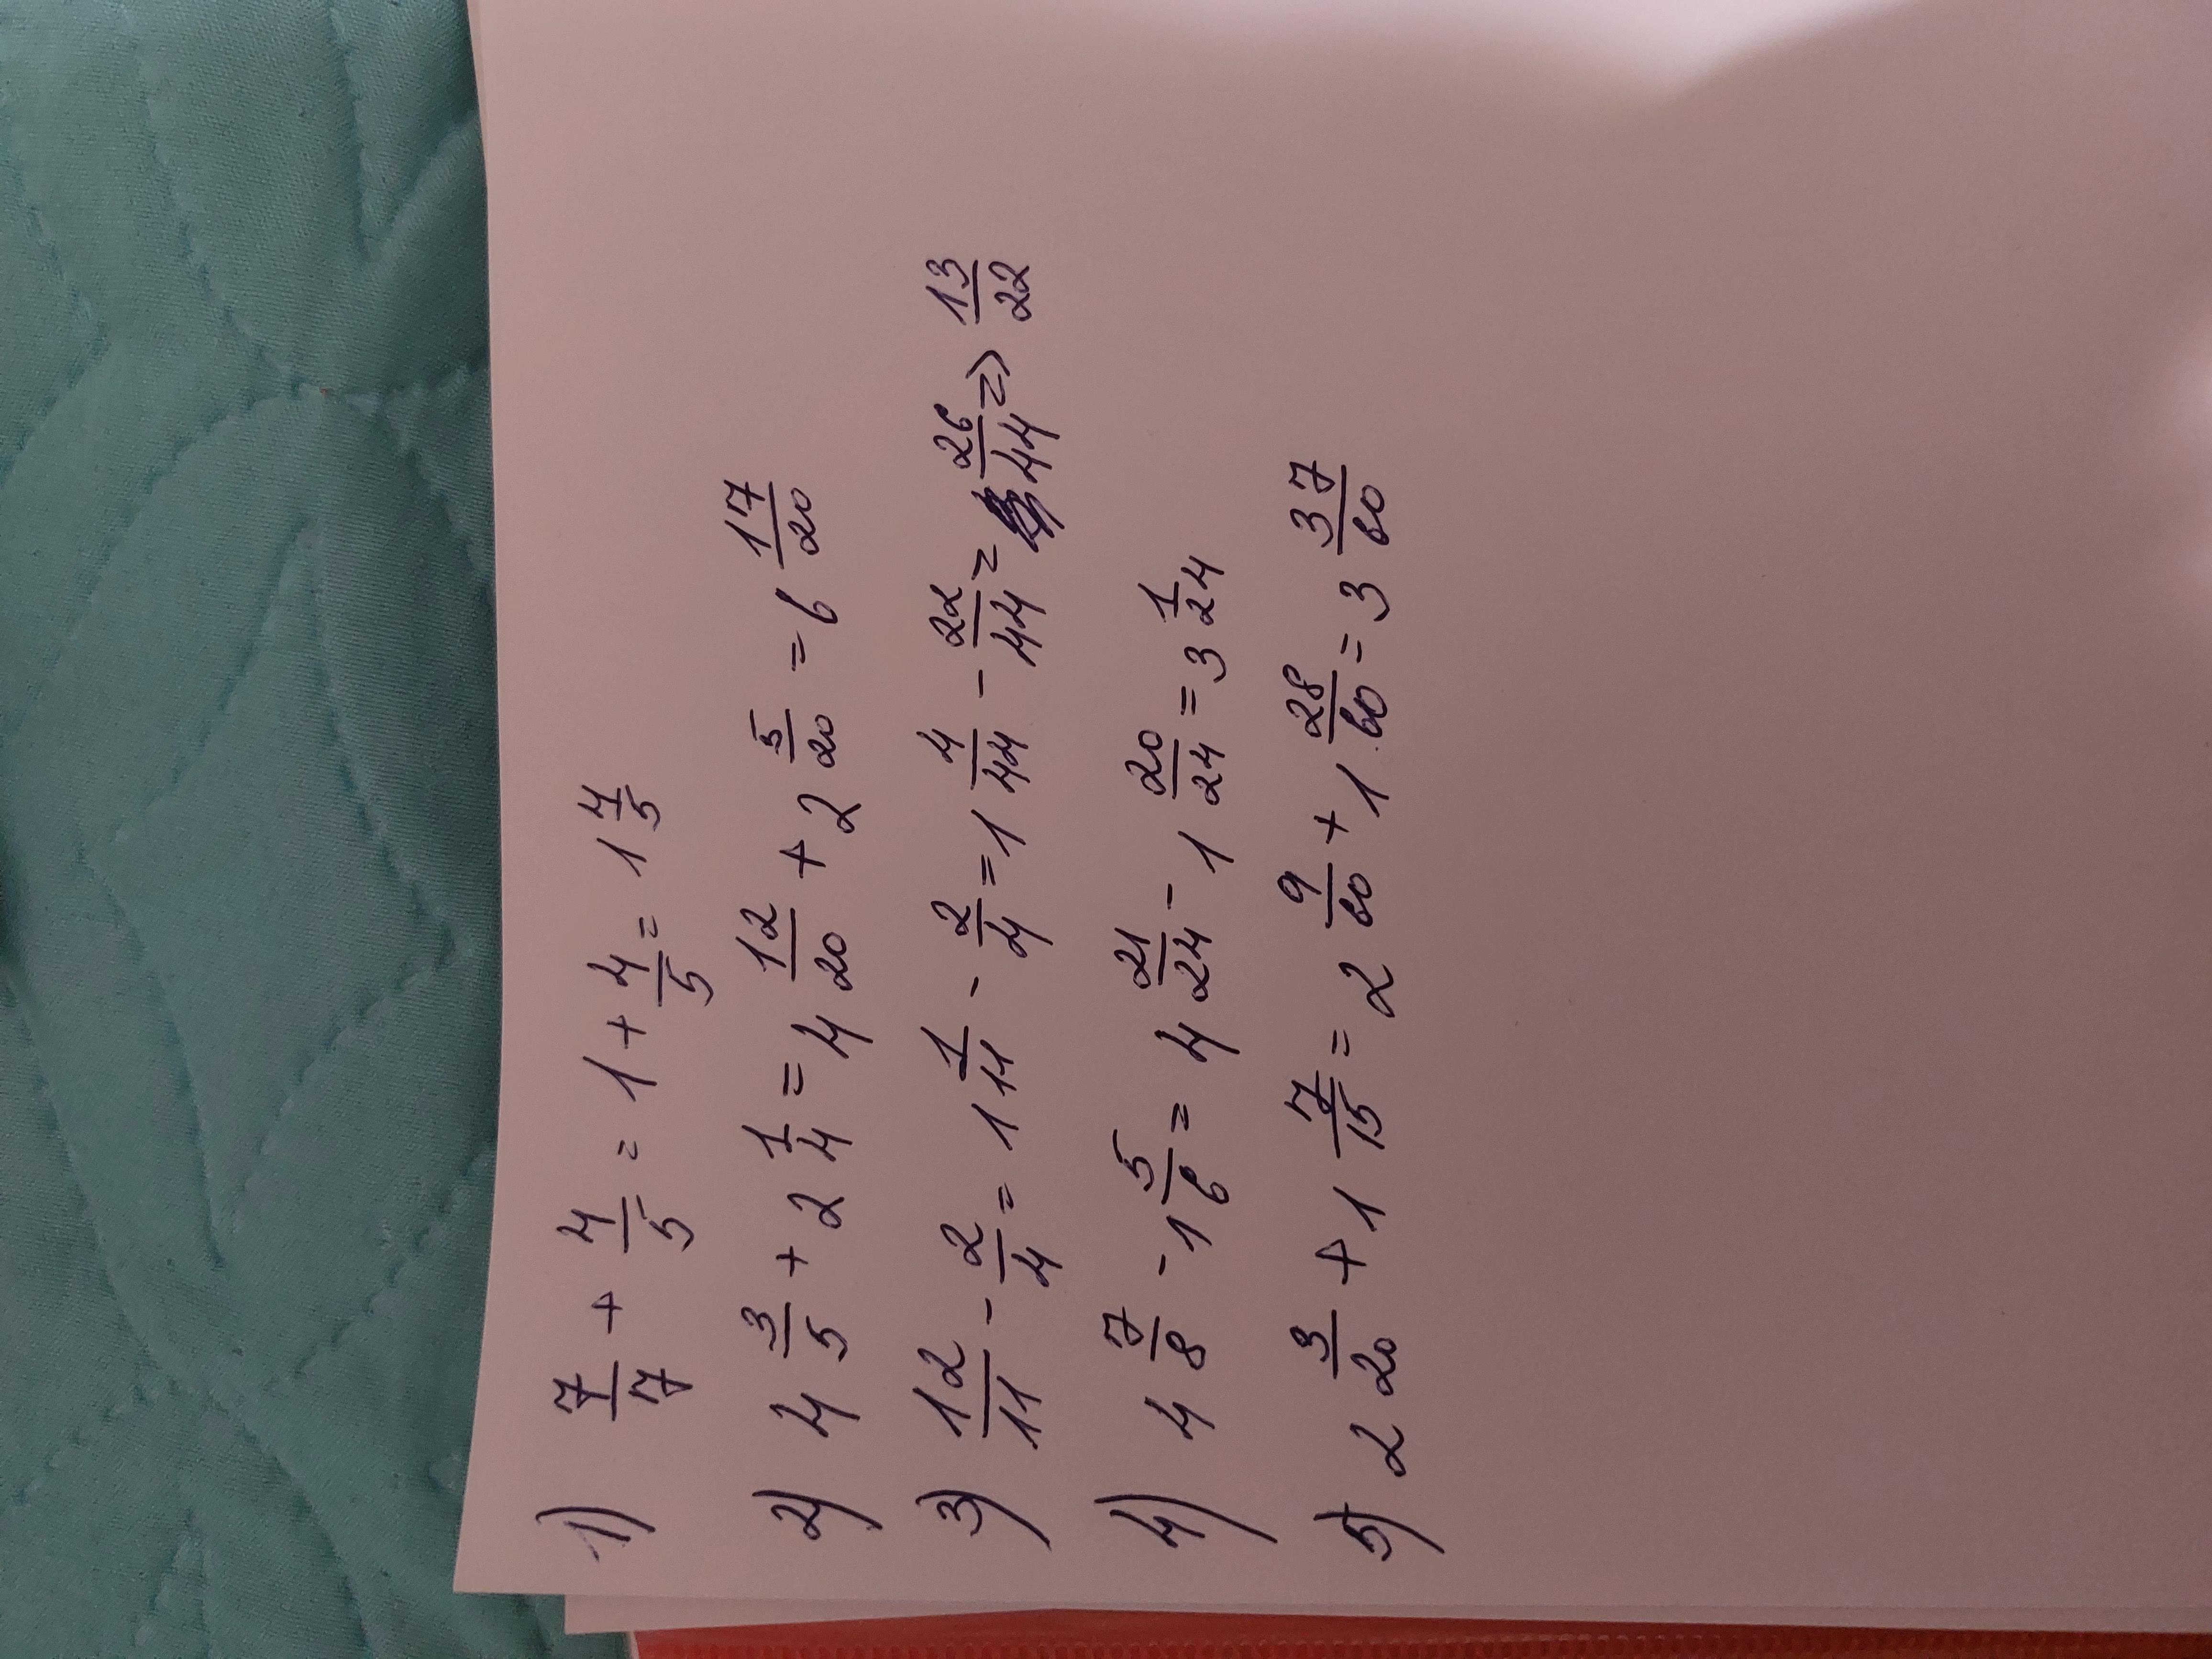 1) 7/7 + 4/5 = 1 + 4/5 = 1 4/5
2) 4 3/5 + 2 1/4 = 4 12/20 + 2 5/20 = 6 17/20
3) 12/11 - 2/4 = 1 1/11 - 2/4 = 1 4/44 - 22/44 = 26/44 => 13/22
4) 4 7/8 - 1 5/6 = 4 21/24 - 1 20/24 = 3 1/24
5) 2 3/20 + 1 7/15 = 2 9/60 + 1 28/60 = 3 37/60